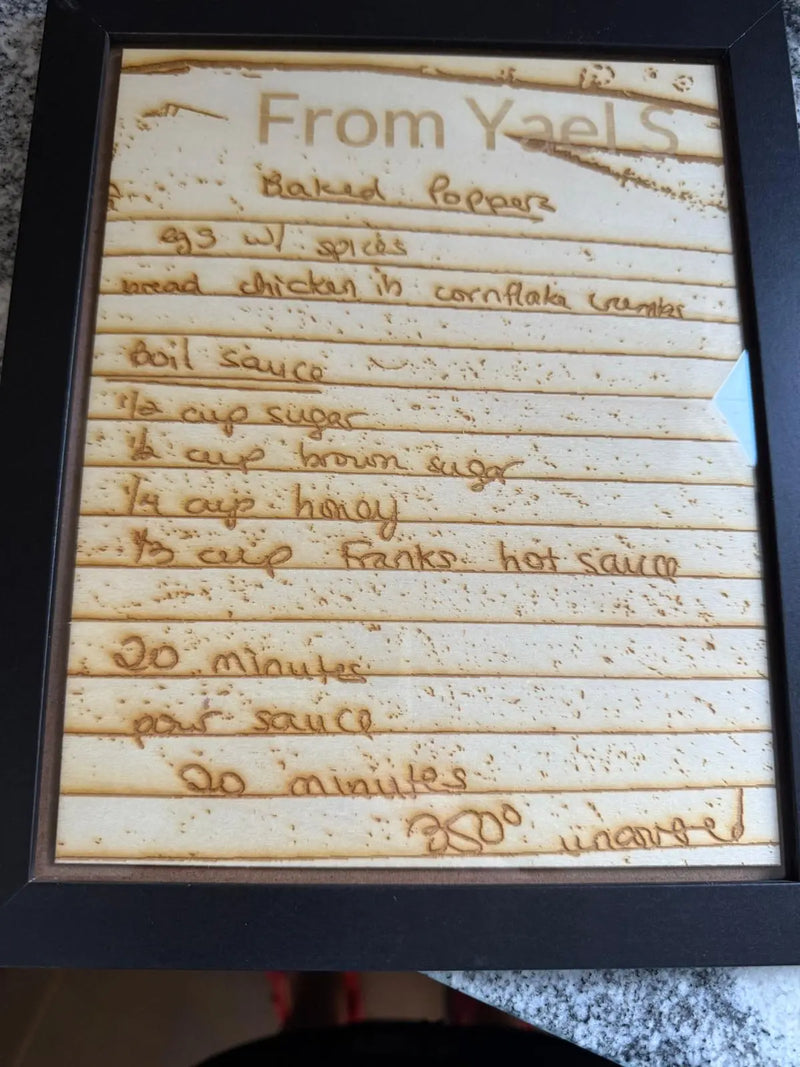 From Yael S
Baked Poppers
egg w/ spices
bread chicken in cornflake crumbs
Boil sauce
1/2 cup sugar
1/2 cup brown sugar
1/4 cup honey
1/3 cup Franks hot sauce
20 minutes
pour sauce
20 minutes
350° uncovered